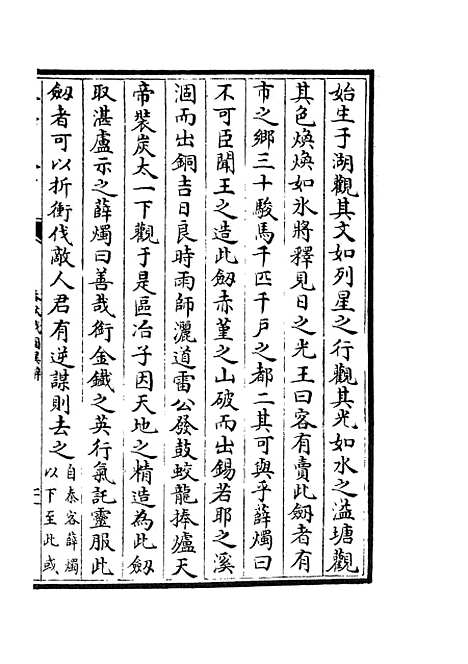 始生于湖觀其文如列星之行觀其光如水之溢塘觀
其色煥煥如氷將釋見日之光王曰客有賣此劒者有
市之鄉三十駿馬千匹千戸之都二其可與乎薛燭曰
不可臣聞王之造此劒赤堇之山破而出錫若耶之溪
涸而出銅吉日良時雨師灑道雷公發鼓蛟龍捧爐天
帝裝炭太一下觀于是區冶子因天地之精造為此劒
取湛盧示之薛燭曰善哉銜金鐵之英行氣託靈服此
劒者可以折衝伐敵人君有逆謀則去之
自秦客薛燭
以下至此或